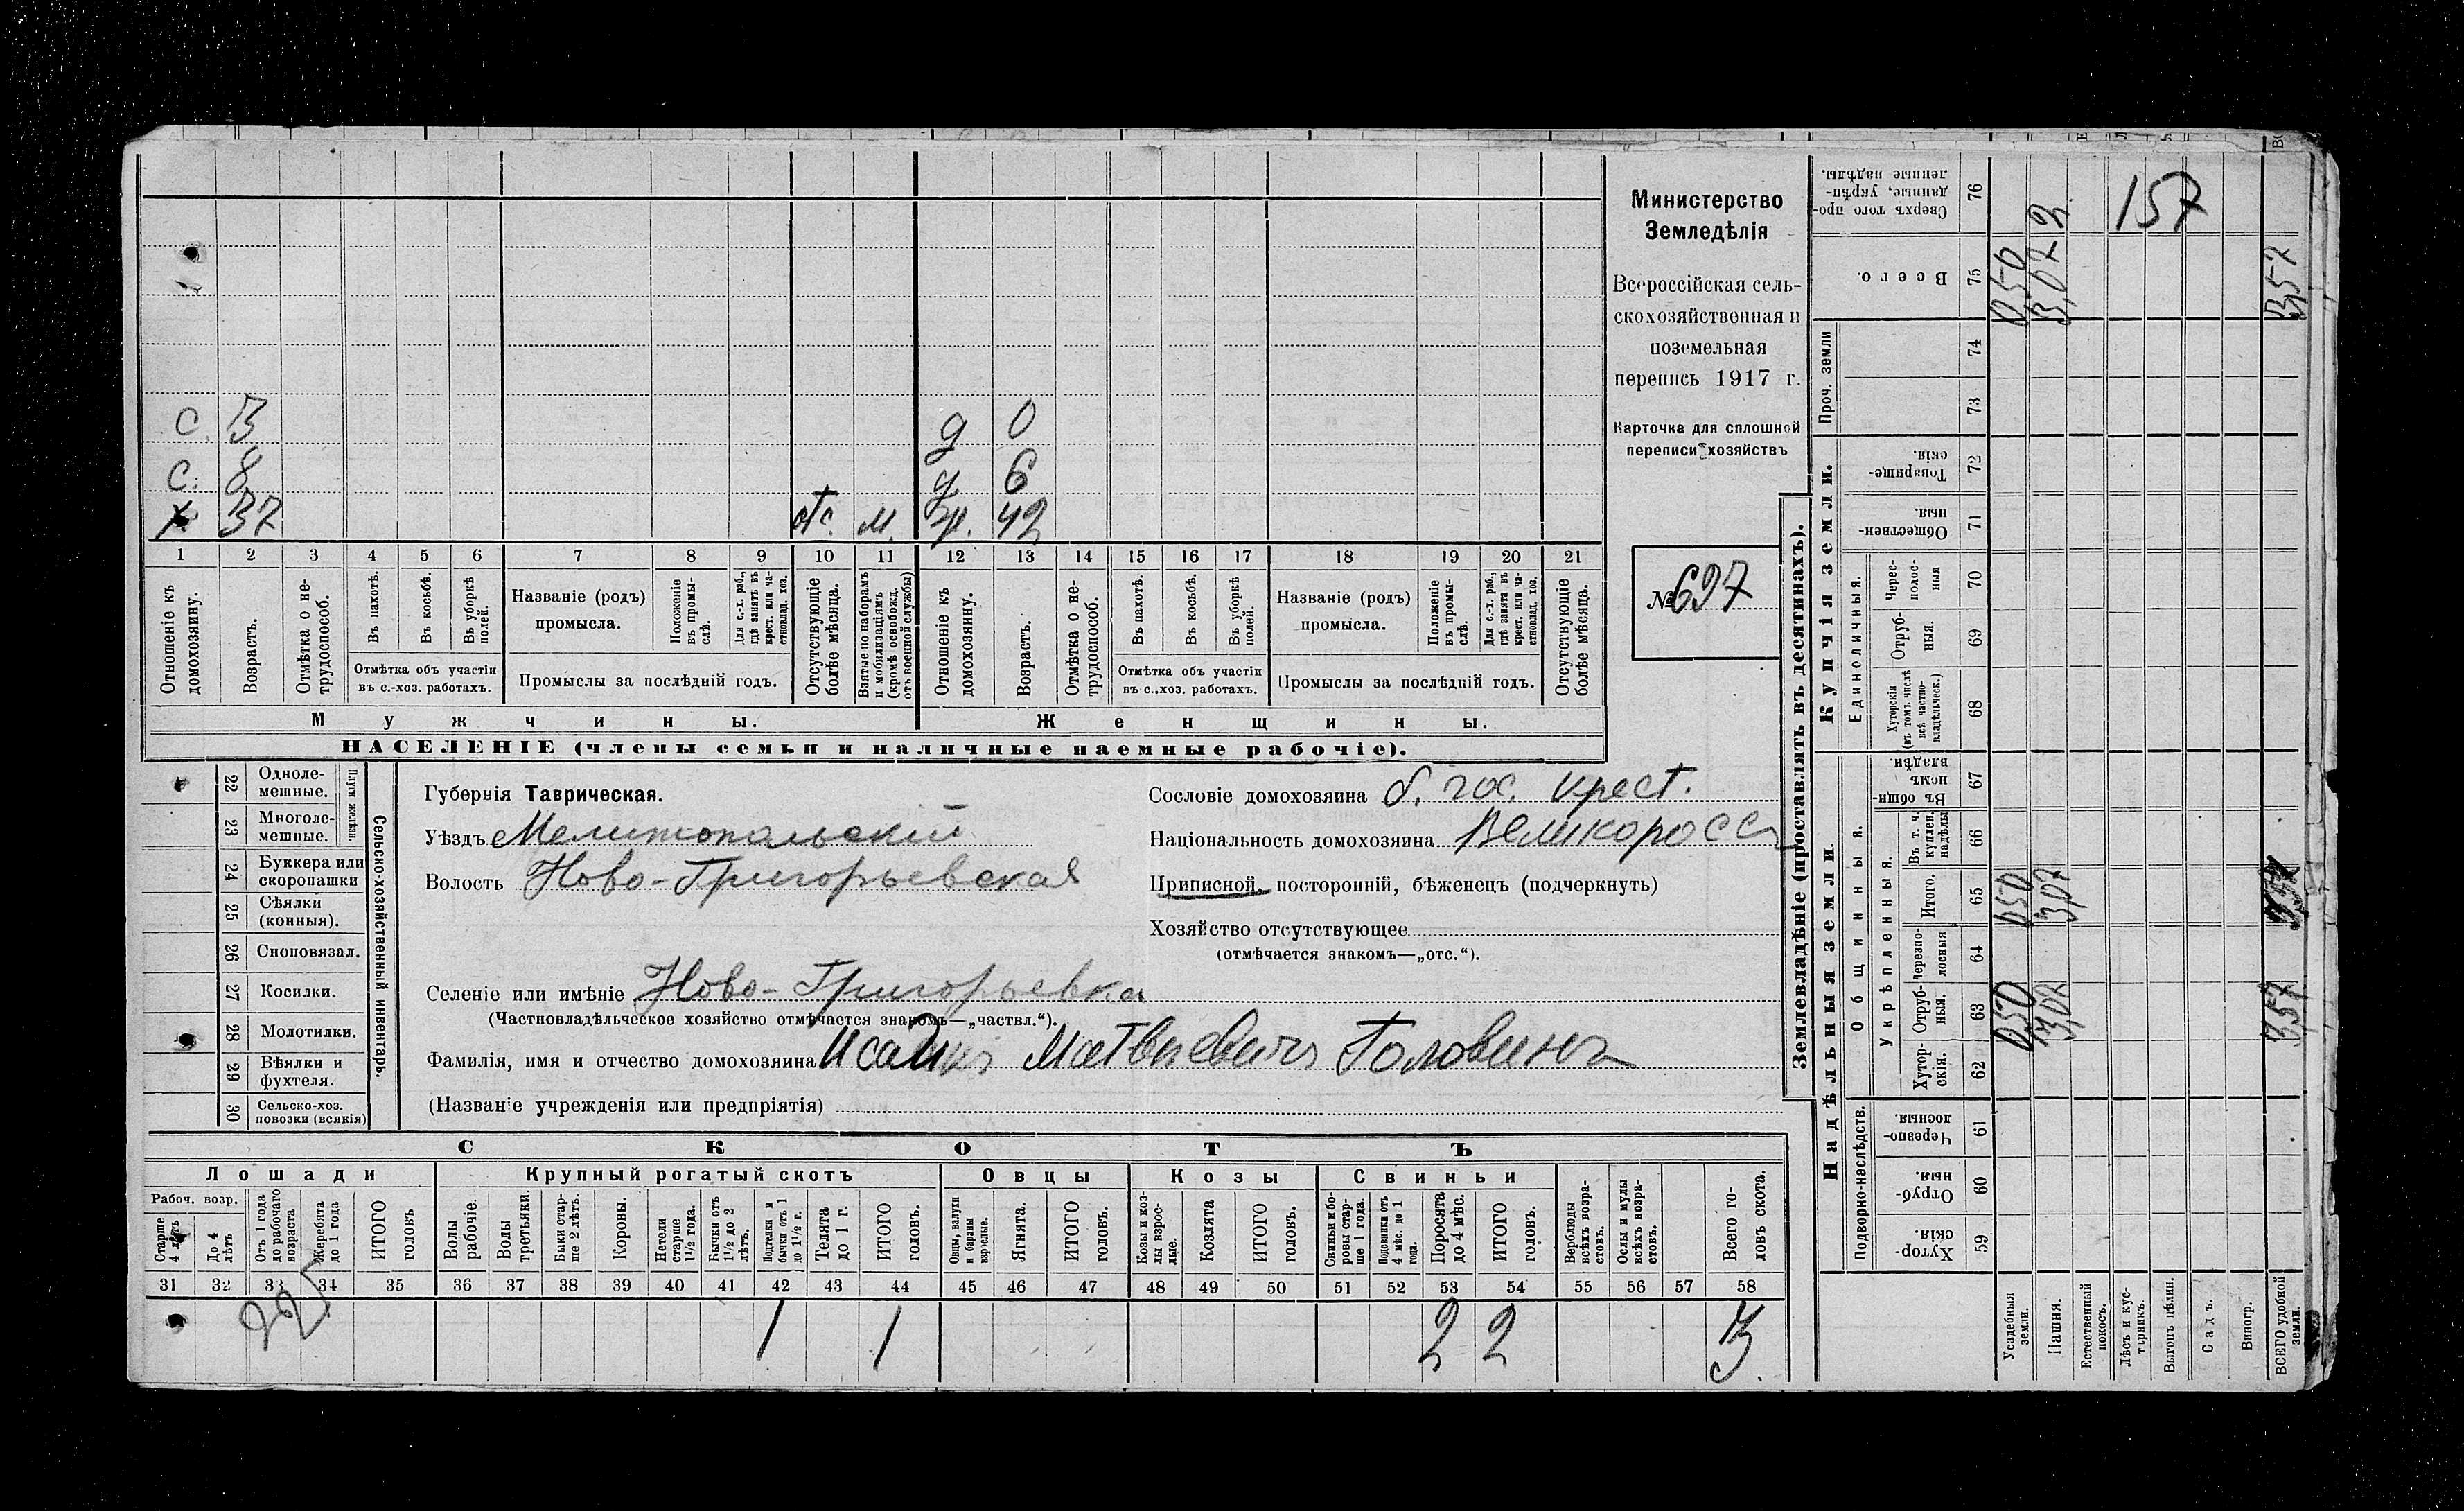 Министерство
Земледѣлія
Всероссійская сель-
скохозяйственная и
поземельная
перепись 1917 г.
Карточка для сплошной
переписи хозяйствъ
№ 697
с. 3 д 0
с. 8 д. 6
х 37 отс. м. ж. 42
1 2 3 4 5 6 7 8 9 10 11 12 13 14 15 16 17 18 19 20 21
Отношеніе къ домохозяину.
Возрастъ.
Отмѣтка о не-трудоспособ.
Въ пахотѣ.
Въ косьбѣ.
Въ уборкѣ полей.
Отмѣтка объ участіи въ с.-хоз. работахъ.
Названіе (родъ) промысла.
Положеніе въ промы-слѣ.
Для с.-х. раб., гдѣ занятъ въ крест. или ча-стновлад. хоз.
Промыслы за послѣдній годъ.
Отсутствующіе болѣе мѣсяца.
Взятые по наборамъ и мобилизаціямъ (кромѣ освобожд. отъ военной службы)
Отношеніе къ домохозяину.
Возрастъ.
Отмѣтка о не-трудоспособ.
Въ пахотѣ.
Въ косьбѣ.
Въ уборкѣ полей.
Отмѣтка объ участіи въ с.-хоз. работахъ.
Названіе (родъ) промысла.
Положеніе въ промы-слѣ.
Для с.-х. раб., гдѣ занята въ крест. или ча-стновлад. хоз.
Промыслы за послѣдній годъ.
Отсутствующіе болѣе мѣсяца.
Мужчины. Женщины.
НАСЕЛЕНІЕ (члены семьи и наличные наемные рабочіе).
Сельско-хозяйственный инвентарь.
Плуги желѣзн.
22 Одноле-мешные.
23 Многоле-мешные.
24 Буккера или скоропашки
25 Сѣялки (конныя).
26 Сноповязал.
27 Косилки.
28 Молотилки.
29 Вѣялки и фухтеля.
30 Сельско-хоз. повозки (всякія)
Губернія Таврическая.
Уѣздъ Мелитопольскій
Волость Ново-Григорьевская
Селеніе или имѣніе Ново-Григорьевка
(Частновладѣльческое хозяйство отмѣчается знакомъ—„частвл.“).
Фамилія, имя и отчество домохозяина Матвѣевичъ Головинъ
(Названіе учрежденія или предпріятія)
Сословіе домохозяина б. гос. крест.
Національность домохозяина Великороссъ
Приписной, посторонній, бѣженецъ (подчеркнуть)
Хозяйство отсутствующее
(отмѣчается знакомъ—„отс.“).
СКОТЪ
Лошади Крупный рогатый скотъ Овцы Козы Свиньи
Рабоч. возр.
Старше 4 лѣтъ
До 4 лѣтъ
Отъ 1 года до рабочаго возраста
Жеребята до 1 года
ИТОГО головъ
Волы рабочіе.
Волы третьяки.
Быки стар-ше 2 лѣтъ.
Коровы.
Нетели старше 1½ года.
Бычки отъ 1½ до 2 лѣтъ.
Подтелки и бычки отъ 1 до 1½ г.
Телята до 1 г.
ИТОГО головъ.
Овцы, валухи и бараны взрослые.
Ягнята.
ИТОГО головъ.
Козы и коз-лы взрос-лые.
Козлята
ИТОГО головъ.
Свиньи и бо-ровы стар-ше 1 года.
Подсвинки отъ 4 мѣс. до 1 года.
Поросята до 4 мѣс.
ИТОГО головъ.
Верблюды всѣхъ возра-стовъ.
Ослы и мулы всѣхъ возра-стовъ.
Всего го-ловъ скота.
31 32 33 34 35 36 37 38 39 40 41 42 43 44 45 46 47 48 49 50 51 52 53 54 55 56 57 58
1 1 2 2 3
Землевладѣніе (проставлять въ десятинахъ).
Надѣльныя земли Купчія земли.
Подворно-наслѣдств.
Общинныя.
Укрѣпленныя.
Единоличныя.
Проч. земли
Хутор-скія. 59
Отруб-ныя. 60
Черезпо-лосныя 61
Хутор-скія. 62
Отруб-ныя. 63
Черезпо-лосныя 64
Итого. 65
Въ т. ч. куплен. надѣлы 66
Въ общин-номъ владѣн. 67
Хуторскія (въ томъ числѣ всѣ частно-владѣльческ.) 68
Отруб-ныя. 69
Черес-полос-ныя 70
Обществен-ныя. 71
Товарище-скія. 72
73
74
Всего. 75
Сверхъ того про-данные, укрѣп-ленные надѣлы. 76
Усадебныя земли. 050 050 050
Пашня. 3,07 3,07 3,07 2
Естественный покосъ.
Лѣсъ и кус-тарникъ.
Выгонъ цѣлин.
Садъ.
Виногр.
ВСЕГО удобной земли. 3,57 3,57 3,57
157